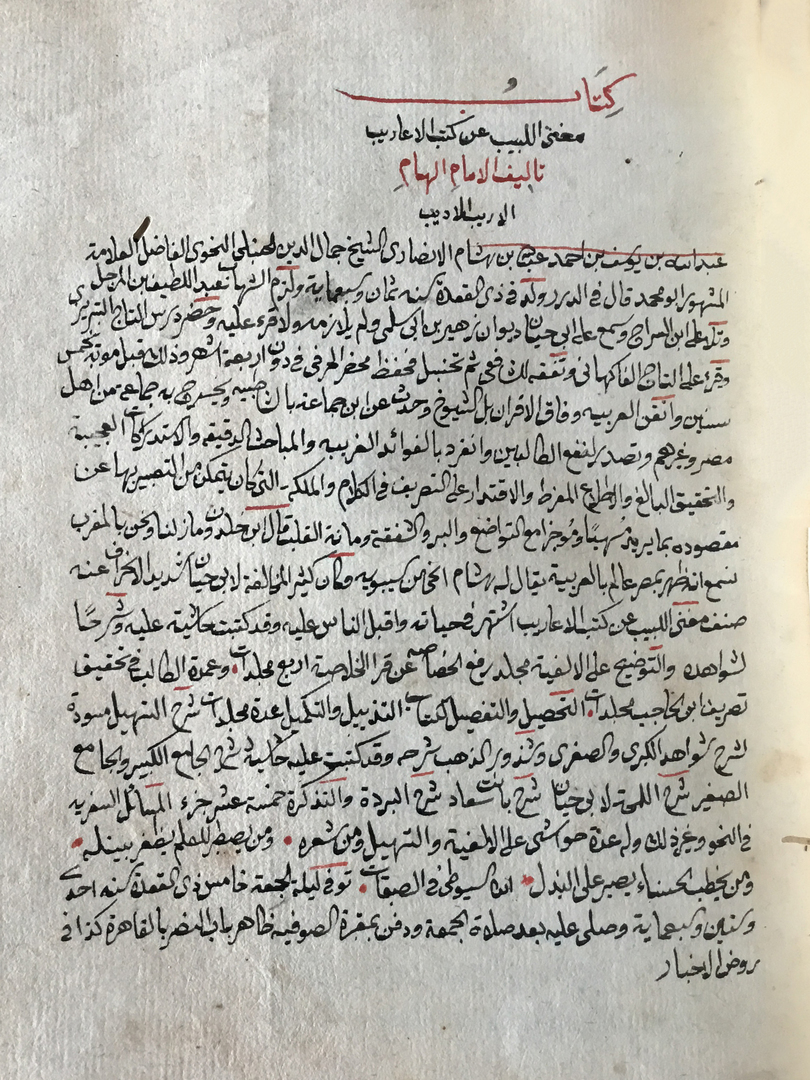 كِتَابُ
مغنى اللبيب عن كتب الاعاريب
تاليف الامامِ الهمامِ
الاريب الاديب
عبد الله بن يوسف بن احمد بن عبد الله بن هشام الانصارى الشيخ جمال الدين الحنبلى النحوى الفاضل العلامة
المشهور ابو محمد قال فى الدرر ولد فى ذى القعدة سنه ثمان وسبعماية ولزم الشهاب عبد اللطيف بن المرحل
وتلا على ابن السراج وسمع على ابى حيان ديوان زهير بن ابى سلمى ولم يلازمه ولا قرء عليه وحضر درس التاج التبريزى
وقرء على التاج الفاكهانى وتفقه للشافعى ثم تحنبل فحفظ مختصر الخرقى فى دون اربعة اشهر وذلك قبل موته بخمس
سنين واتقن العربيه وفاق الاقران بل الشيوخ وحدث عن ابن جماعة بالشاطبيه وتخرج به جماعة من اهل
مصر وغيرهم وتصدر لنفع الطالبين وانفرد بالفوائد الغريبه والمباحث الدقيقه والاستدراكات العجيبة
والتحقيق البالغ والاطلاع المفرط والاقتدار على التصريف فى الكلام والملكه التى كان يتمكن من التعبير بها عن
مقصوده بما يريد مُسهبًا وموجزا مع التواضع والبر والشفقة ورقة القلب قال ابن خلدون ومازلنا ونحن بالمغرب
نسمع انه ظهر بمصر عالم بالعربية يقال له ابن هشام انحى من سيبويه وكان كثير المخالفة لابى حيان شديد الانحراف عنه
صنف مغنى اللبيب عن كتب الاعاريب اشتهر فى حياته واقبل الناس عليه وقد كتبت حاشية عليه وشرحًا
لشواهده والتوضيح على الالفية مجلد رفع الخصاصه عن قرا الخلاصة اربع مجلدات وعمدة الطالب فى تحقيق
تصريف ابن الحاجب مجلدات التحصيل والتفصيل لكتاب التذييل والتكميل عدة مجلدات شرح التسهيل مسودة
شرح شواهد الكبرى والصغرى وشذور الذهب شرحه وقد كتبت عليه حاشية شرح الجامع الكبير والجامع
الصغير شرح اللمحة لابى حيان شرح بانت سعاد شرح البردة والتذكرة خمسة عشر جزء المسائل السفريه
فى النحو وغير ذلك وله عدة حواشى على الالفية والتسهيل ومن شعره ومن يصطبر للعلم يظفر بنيله
ومن يخطب الحسناء يصبر على البذل السيوطى فى الطبقات توفى ليلة الجمعة خامس ذى القعدة سنه احدى
وستين وسبعماية وصلى عليه بعد صلاة الجمعة ودفن بمقبرة الصوفيه ظاهر باب النصر بالقاهرة كذا فى
روض الاخبار